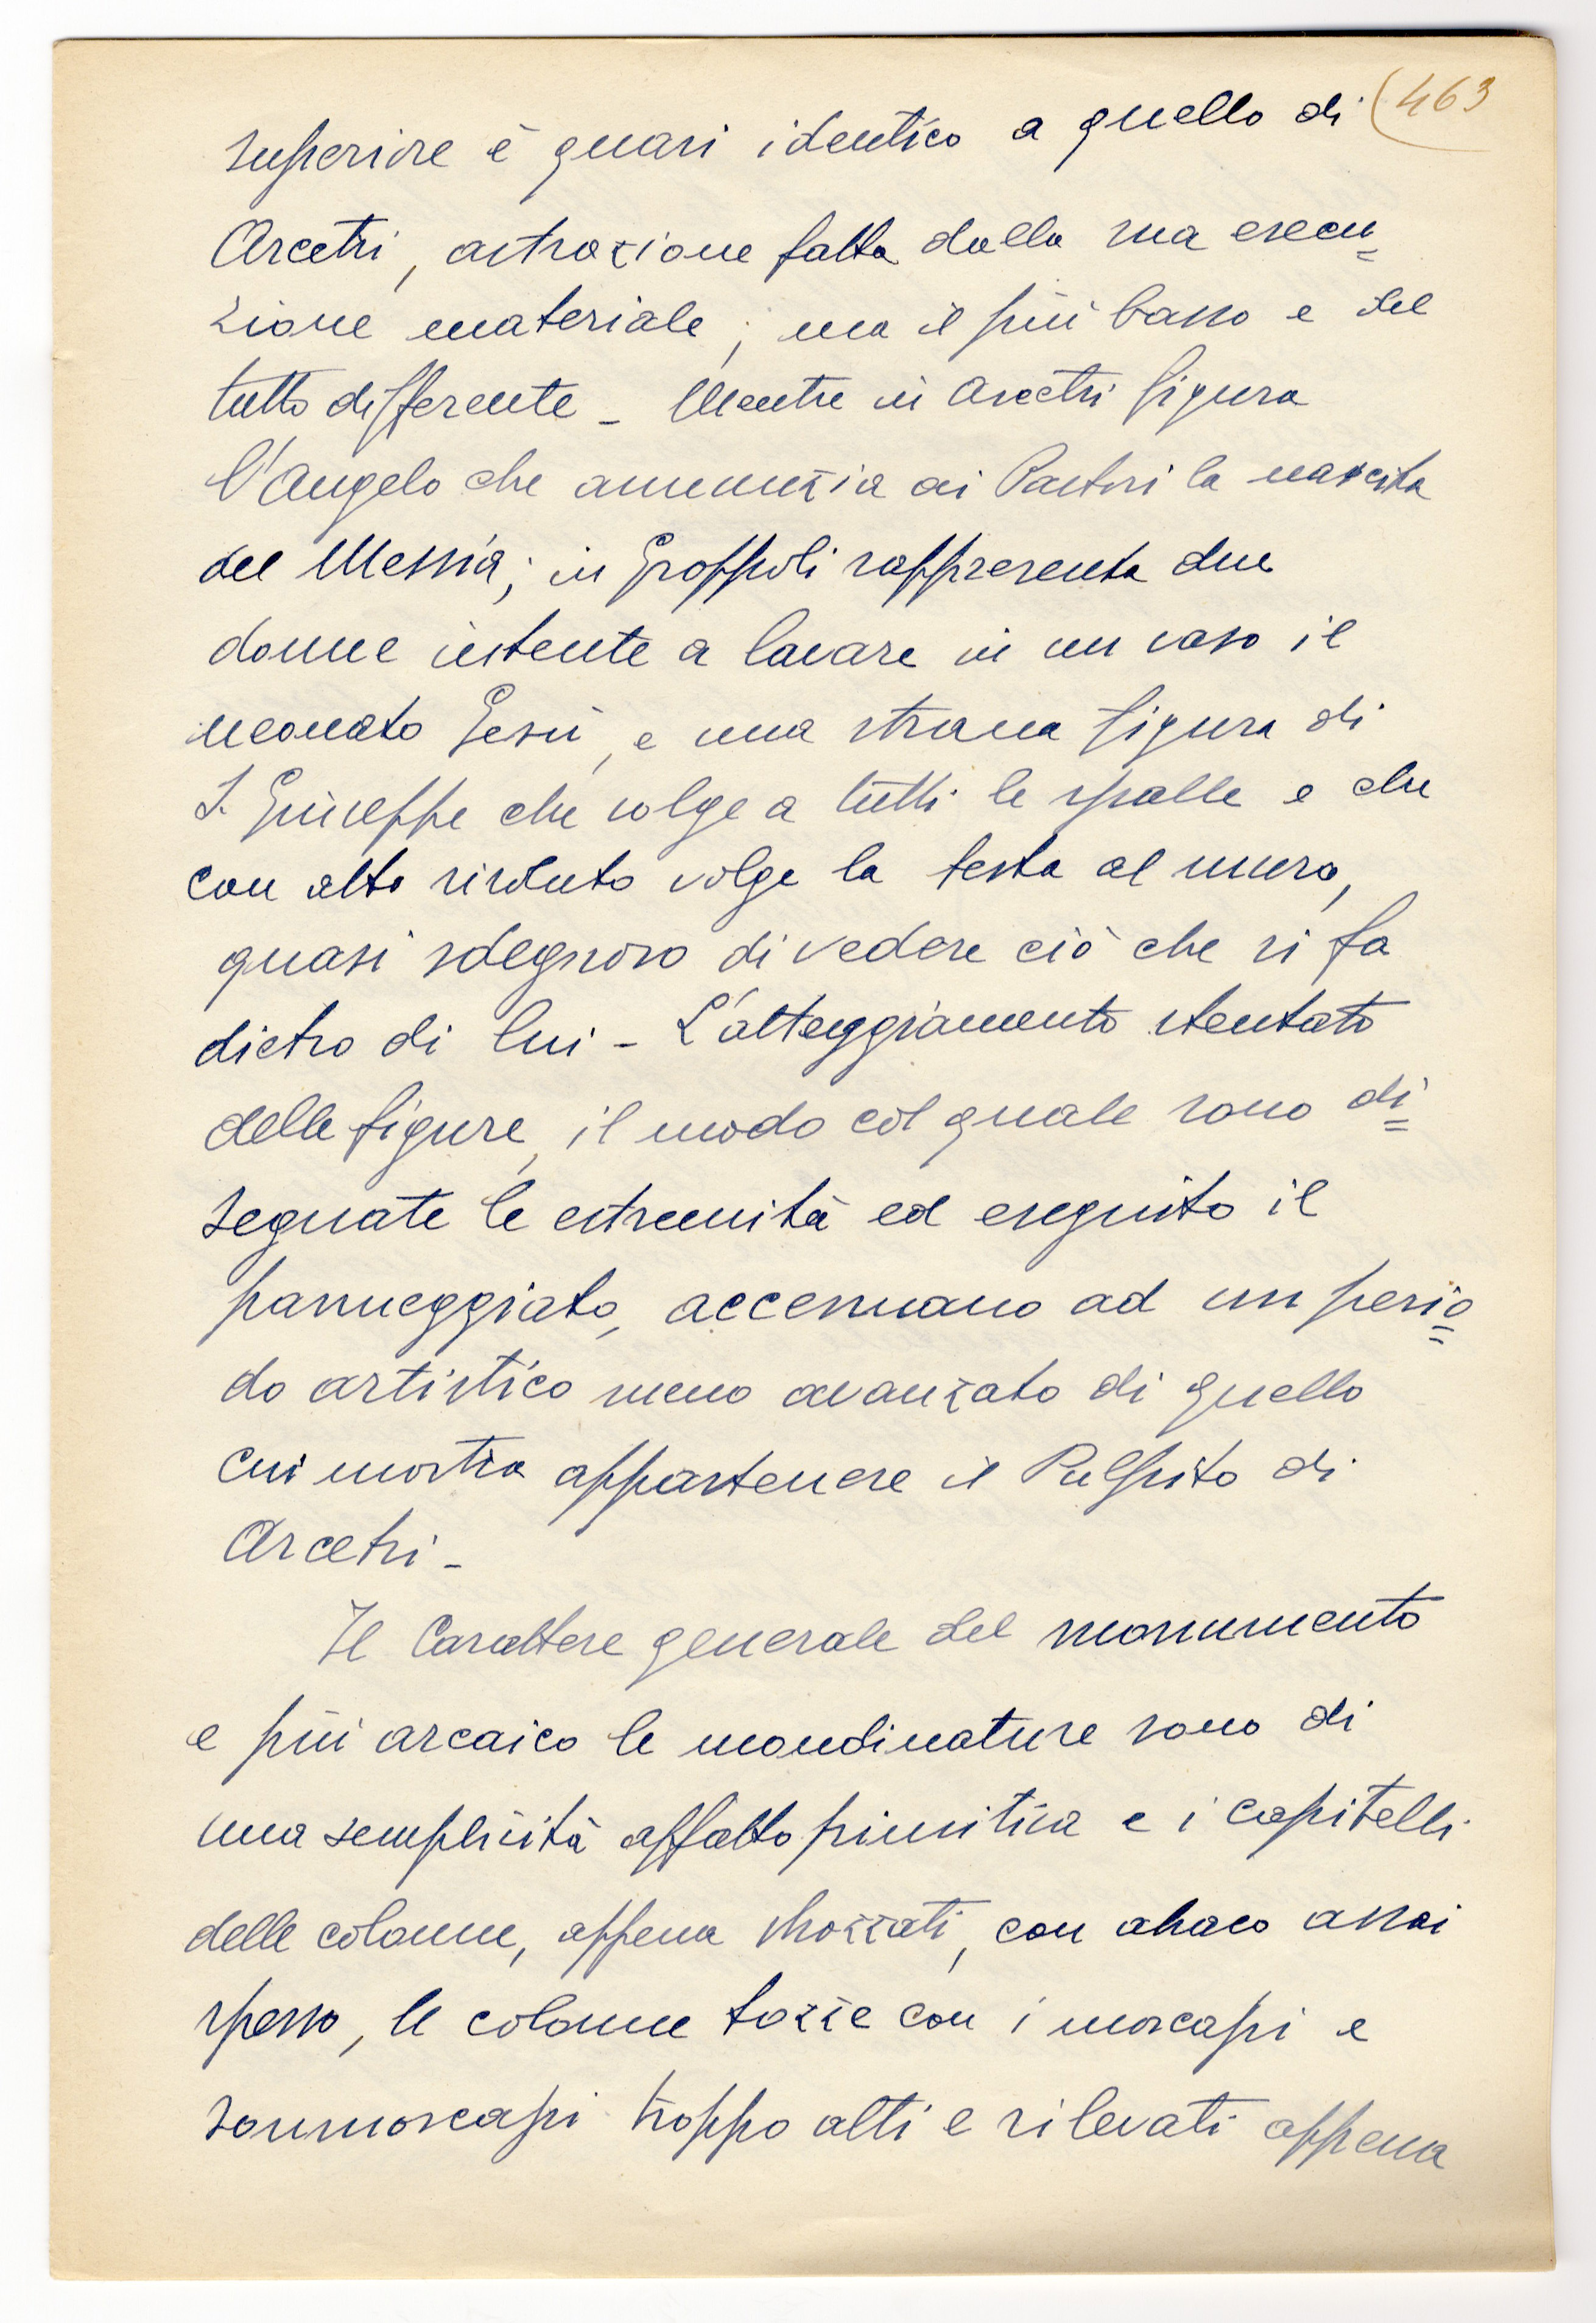 463
superiore è quasi identico a quello di
Arcetri, astrazione fatta dalla sua esecu=
zione materiale; ma il più basso e del
tutto differente - Mentre in Arcetri figura
l'Angelo che annunzia ai Pastori la nascita
del Messia; in Groppoli rappresenta due
donne intente a lavare in un vaso il
neonato Gesù, e una strana figura di
S. Giuseppe che volge a tutti le spalle e che
con atto risoluto volge la testa al muro,
quasi sdegnoso di vedere ciò che si fa
dietro di lui - L'atteggiamento stentato
delle figure, il modo col quale sono di=
segnate le estremità ed eseguito il
panneggiato, accennano ad un perio=
do artistico meno avanzato di quello
cui mostra appartenere il Pulpito di
Arcetri -
Il Carattere generale del monumento
e più arcaico le mondinature sono di
una semplicità affatto primitiva e i capitelli
delle colonne, appena sbozzati, con abaco assai
spesso, le colonne tozze con i moscapi e
sommoscapi troppo alti e rilevati appena